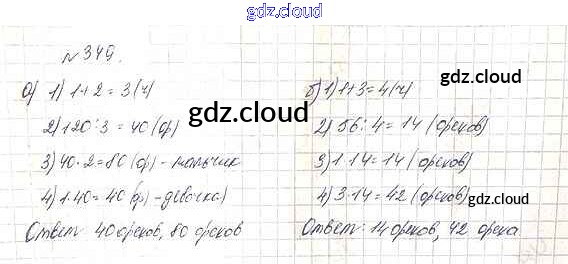 gdz.cloud
№ 349.
а) 1) 1+2=3(ч)
2) 120:3=40(ор)
3) 40·2=80(ор)-мальчик
4) 1·40=40(ор)-девочка)
Ответ: 40 орехов, 80 орехов
б) 1) 1+3=4(ч)
2) 56:4=14(орехов)
3) 1·14=14(орехов)
4) 3·14=42(орехов)
Ответ: 14 орехов, 42 ореха.
gdz.cloud
gdz.cloud
gdz.cloud
gdz.cloud